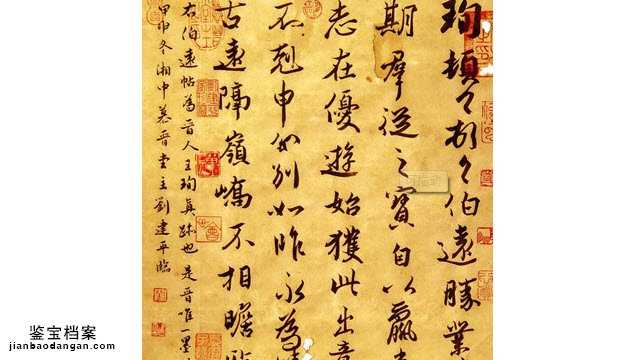 珣頓首頓首伯遠勝業
期群從之寶自以羸
志在優遊始獲此出意
不剋申如別如昨永為
古遠隔嶺嶠不相瞻臨
右伯遠帖為晉人王珣真跡也是晉唯一墨
甲申冬湘中慕晉堂主劉建平臨
鉴宝档案
jianbaodangan.com